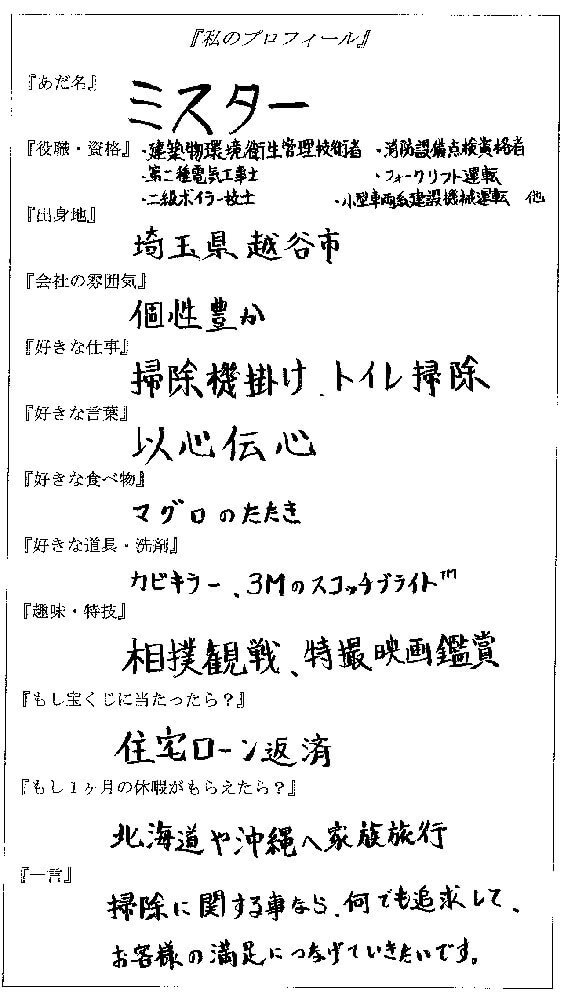 『私のプロフィール』
『あだ名』
ミスター
『役職・資格』・建築物環境衛生管理技術者 ・消防設備点検資格者
・第二種電気工事士 ・フォークリフト運転
・二級ボイラー技士 ・小型車両系建設機械運転 他
『出身地』
埼玉県越谷市
『会社の雰囲気』
個性豊か
『好きな仕事』
掃除機掛け、トイレ掃除
『好きな言葉』
以心伝心
『好きな食べ物』
マグロのたたき
『好きな道具・洗剤』
カビキラー、3Mのスコッチブライト™
『趣味・特技』
相撲観戦、特撮映画鑑賞
『もし宝くじに当たったら？』
住宅ローン返済
『もし１ヶ月の休暇がもらえたら？』
北海道や沖縄へ家族旅行
『一言』
掃除に関する事なら、何でも追求して、
お客様の満足につなげていきたいです。